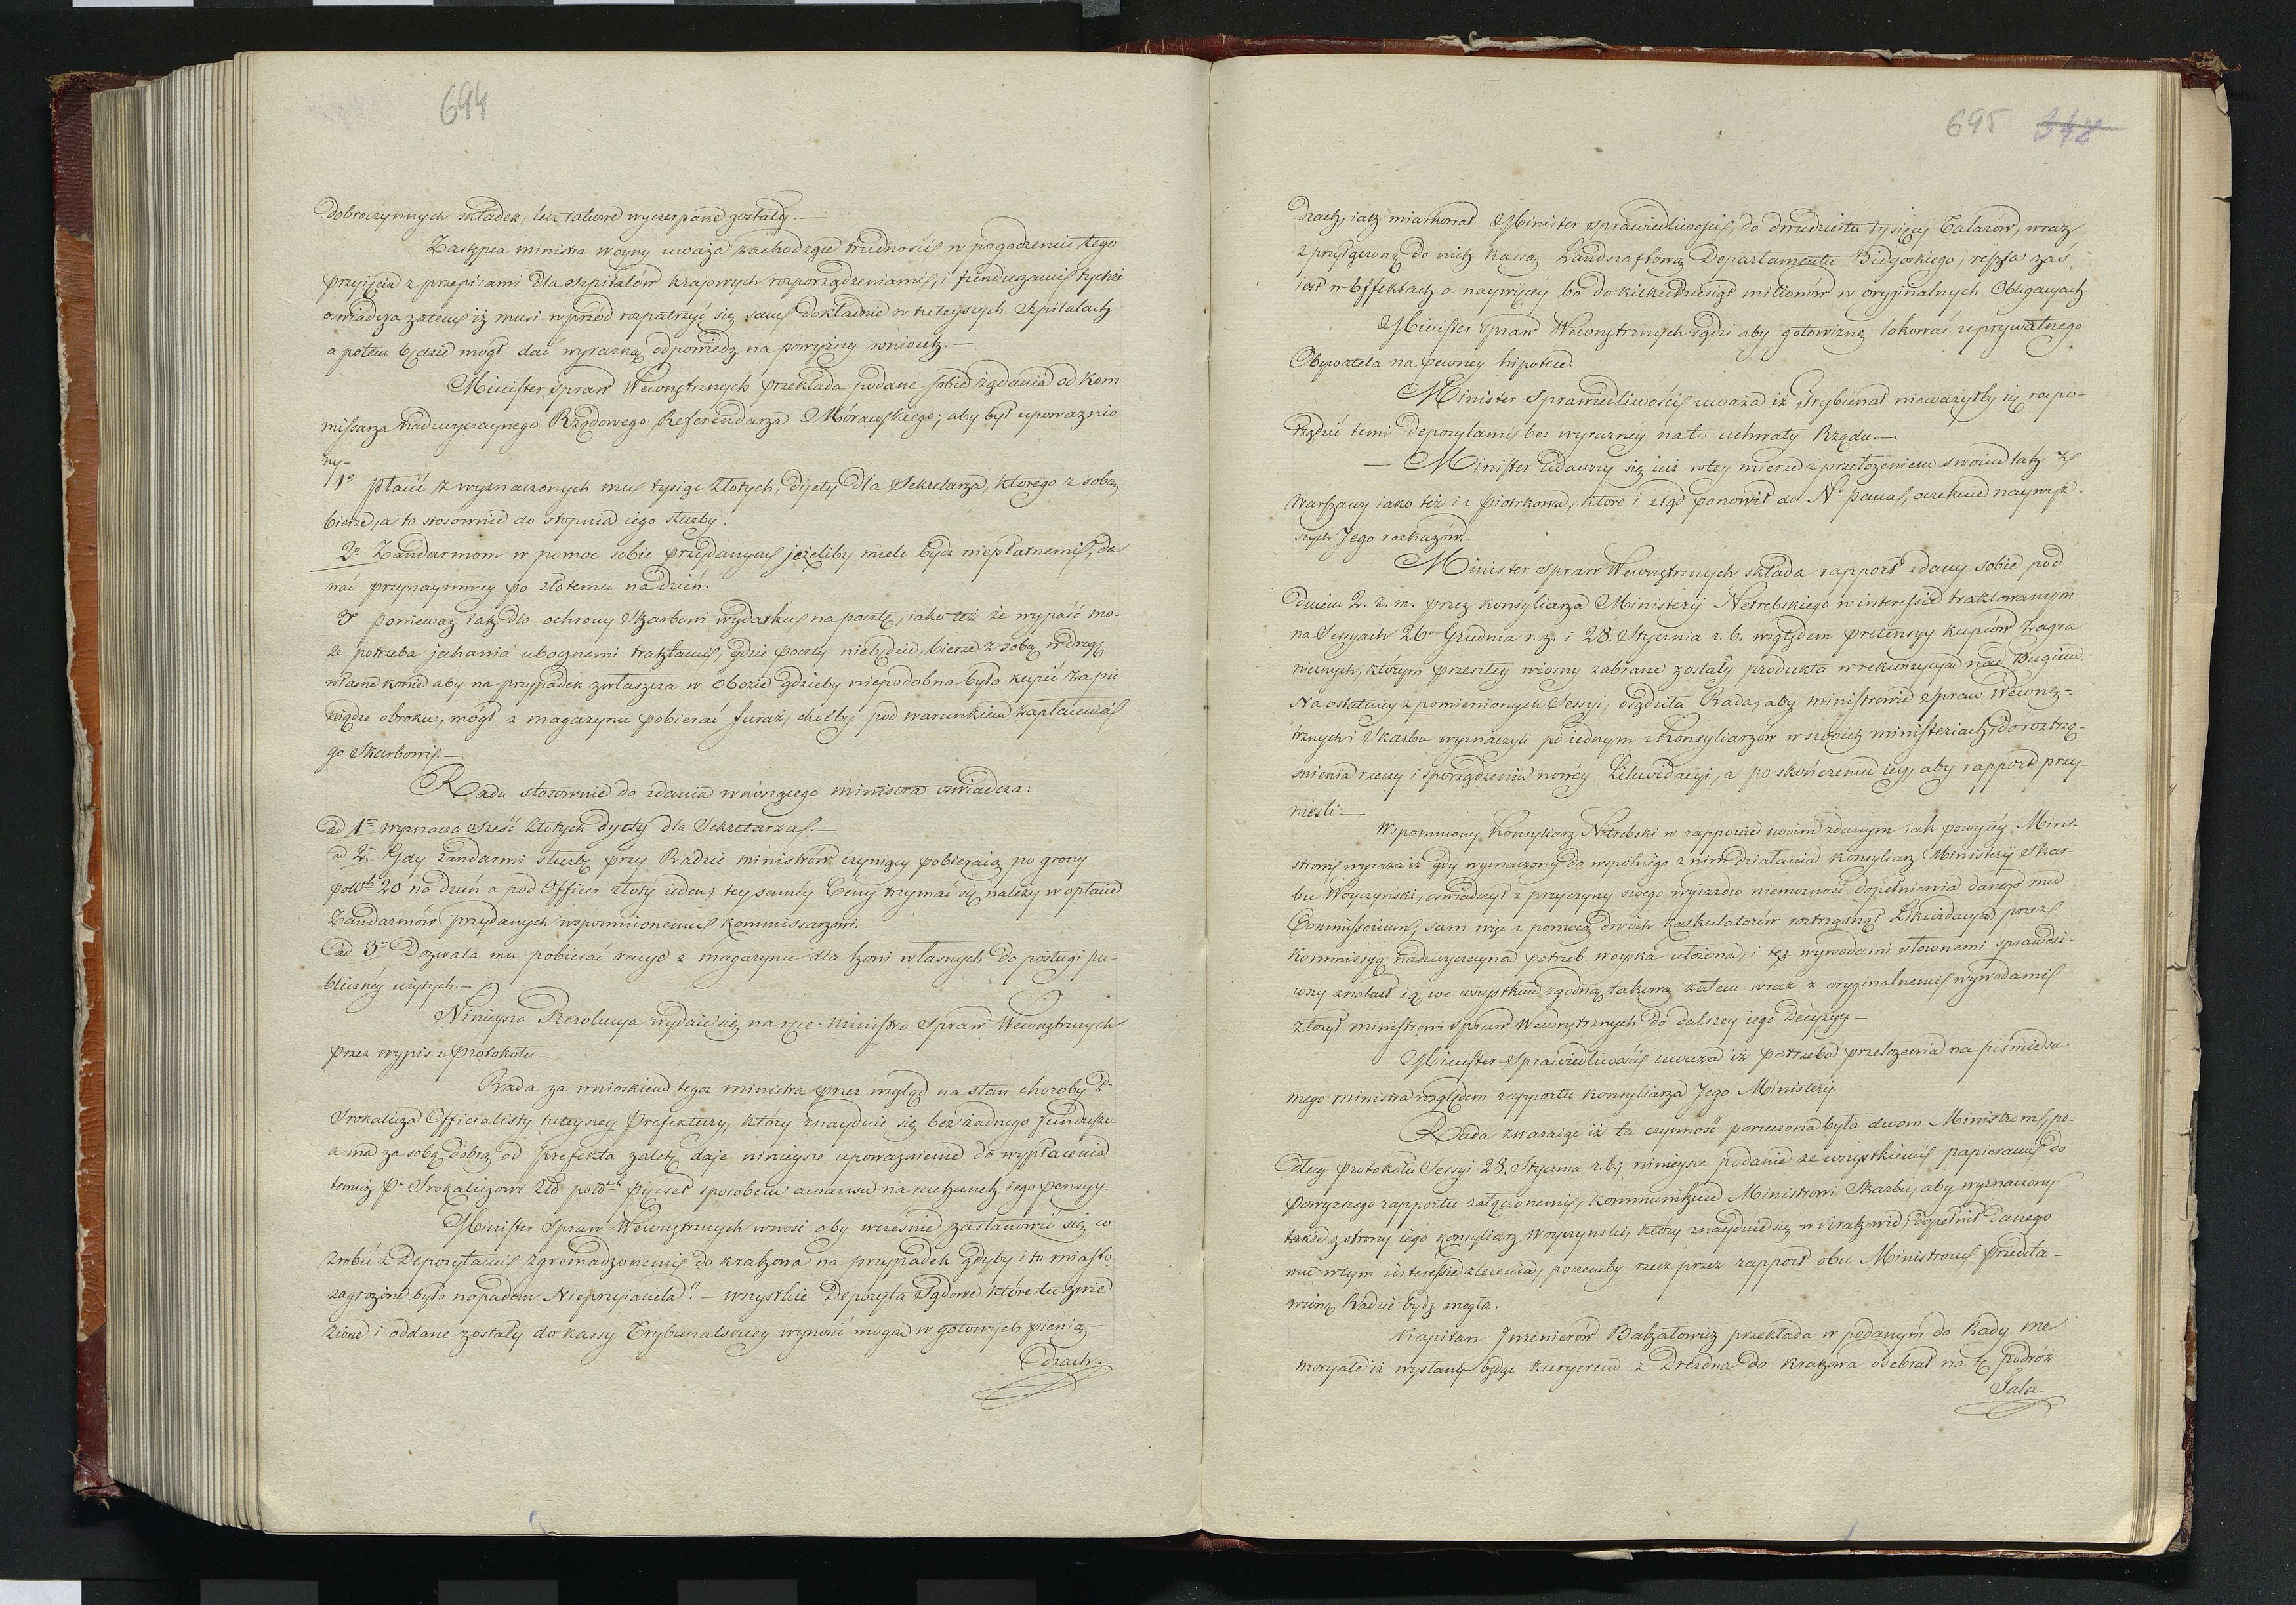 694
dobroczynnych składek, lecz takowe wyczerpane zostały.—
Zastępca ministra woyny uważa zachodzące trudności w pogodzeniu tego
przyięcia z przepisami dla szpitalów krajowych rozporządzeniami, i funduszami tychże
oświadcza zatem iż musi wprzód rozpatrzyć się sam dokładnie w tuteyszych szpitalach
a potem będzie mógł dać wyraźną odpowiedz na powyższy wniosek.—
Minister spraw Wewnętrznych przekłada podane sobie żądania od Kom-
missarza nadzwyczaynego Rządowego Referendarza Morawskiego; aby był upoważnio
ny—
1o płacić z wyznaczonych mu tysiąc Złotych, dyety dla Sekretarza, którego z sobą
bierze, a to stosownie do stopnia iego służby.
2o Żandarmom w pomoc sobie przydanym jeżeliby mieli bydz niepłatnemi, da
wać przynaymniey po złotemu na dzień.
3o ponieważ tak dla ochrony Skarbowi wydatku na pocztę, iako też że wypaść mo-
że potrzeba jechania ubocznemi traktami, gdzie poczty niebędzie, bierze z sobą w drogę
własne konie aby na przypadek zwłaszcza w Obozie gdzieby niepodobna było kupić za pie
niądze obroku, mógł z magazynu pobierać furaż, choćby pod warunkiem zapłacenia
go Skarbowi.—
Rada stosownie do zdania wnoszącego ministra oświadcza:
ad 1o wyznacza sześć złotych dyety dla Sekretarza.—
ad 2o Gdy żandarmi służbę przy Radzie ministrów czyniący pobieraią po groszy
pols. 20 na dzień a pod Officer złoty ieden; tey samey Ceny trzymać się należy w opłacie
Żandarmów przydanych wspomnionemu Kommissarzowi.
ad 3o Dozwala mu pobierać racye z magazynu dla koni własnych do posługi pu-
bliczney użytych.—
Ninieysza Rezolucya wydaie się na ręce ministra Spraw Wewnętrznych
przez wypis z protokołu—
Rada za wnioskiem tegoż ministra przez wzgląd na stan choroby P.
Srokalicza Officialisty tuteyszey Prefektury, który znayduie się bez żadnego funduszu
a ma za sobą dobrą od prefekta zaletę daje ninieysze upoważnienie do wypłacenia
temuż P. Srokaliczowi Złt pols. pięćset sposobem awansu na rachunek iego pensyi.
Minister Spraw Wewnętrznych wnosi aby wcześnie zastanowić się, co
zrobić z Depozytami zgromadzonemi do Krakowa na przypadek gdyby i to miasto
zagrożone było napadem Nieprzyiaciela?— wszystkie Depozyta Sądowe które tu zwie
zione i oddane zostały do kassy Trybunalskiey wynosić mogą w gotowych pienią-
dzach.
695 348
dzach, iak miarkował Minister Sprawiedliwości, do dwudziestu tysięcy Talarów, wraz
z przyłączoną do nich kassą Landszaftową Departamentu Bidgoskiego; reszta zaś
iest w Effektach a naywięcey bo do kilkudziesiąt milionów w oryginalnych Obligacyach.
Minister Spraw Wewnętrznych sądzi aby gotowiznę lokować u prywatnego
Obywatela na pewney hipotece.
Minister Sprawiedliwości uważa iż Trybunał nieważyłby się rozpo-
rządzić temi depozytami bez wyrazney na to uchwały Rządu.—
— Minister udawszy się iuż w tey mierze z przełożeniem swoim tak z
Warszawy iako też i z Piotrkowa, które i ztąd ponowił do No pana, oczekuie naywyż-
szych Jego rozkazów.—
Minister spraw Wewnętrznych składa rapport zdany sobie pod
dniem 2. z. m. przez Konsyliarza Ministerij Netrebskiego w interessie traktowanym
na Sessyach 26o Grudnia r. z. i 28. Stycznia r. b. względem pretensyy kupców Zagra
nicznych, którym przeszłey wiosny zabrane zostały produkta w rekwizycyą nad Bugiem.
Na ostatniey z pomienionych Sessyi, osądziła Rada, aby ministrowie Spraw Wewnę-
trznych i Skarbu wyznaczyli po iednym z Konsyliarzów w swoich ministeriach, do roztrzą-
śnienia rzeczy i sporządzenia nowey Likwidacyi, a po skończeniu iey, aby rapport przy-
nieśli—
Wspomniony Konsyliarz Netrebski w rapporcie swoim zdanym iak powyżey Mini-
strowi wyraża iż gdy wyznaczony do wspólnego z nim działania Konsyliarz Ministerij Skar-
bu Woyczyński, oświadczył z przyczyny swego wyiazdu niemożność dopełnienia danego mu
Commissorium; sam więc z pomocą dwóch Kalkulatorów roztrząsnął Likwidacyą przez
Kommissyą nadzwyczayną potrzeb woyska ułożoną, i tęż wywodami słownemi sprawdzi-
wszy znalazł ią we wszystkiem zgodną, takową zatem wraz z oryginalnemi wywodami
złożył ministrowi Spraw Wewnętrznych do dalszey iego Decyzyi—
Minister Sprawiedliwości uważa iż potrzeba przełożenia na piśmie sa
mego ministra względem rapportu Konsyliarza Jego Ministerij.
Rada zważaiąc iż ta czynność poruczona była dwom Ministrom, po-
dług protokołu Sessyi 28. Stycznia r. b.; ninieysze podanie ze wszystkiemi papierami do
powyższego rapportu załączonemi, kommunikuie Ministrowi Skarbu, aby wyznaczony
także z strony iego Konsyliarz Woyczyński, który znayduie się w Krakowie, dopełnił danego
mu w tym interessie zlecenia, poczemby rzecz przez rapport obu Ministrów przedsta-
wioną Radzie bydź mogła.
Kapitan Inżenierów Bakałowicz przekłada w podanym do Rady me
moryale iż wysłany będąc kuryerem z Drezna do Krakowa odebrał na tę podróż
Tala-